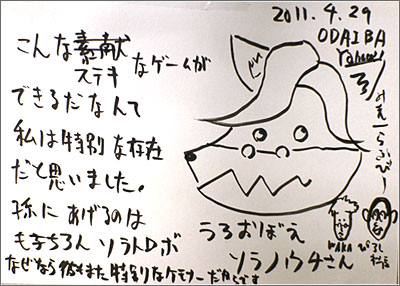 こんな素献なゲームが
ステキ
できるだなんて
私は特別な存在
だと思いました。
孫にあげるのは
もちろん ソラトロボ
なぜなら彼もまた特別なケモナーだからです
2011.4.29
ODAIBA
うろおぼえ
ソラノウチさん
WAKA